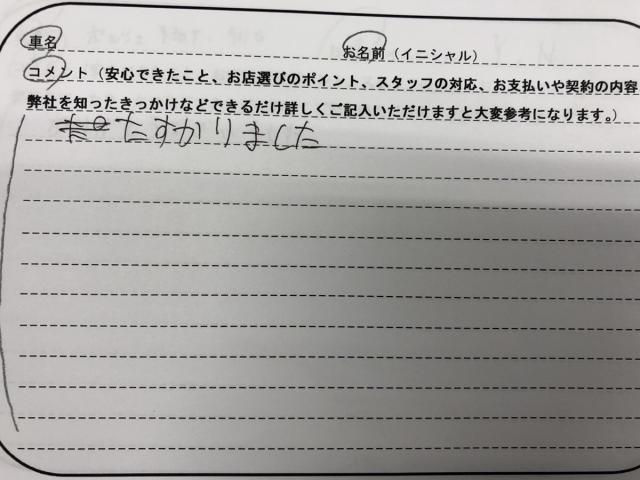 車名
お名前（イニシャル）
コメント（安心できたこと、お店選びのポイント、スタッフの対応、お支払いや契約の内容
弊社を知ったきっかけなどできるだけ詳しくご記入いただけますと大変参考になります。）
たすかりました